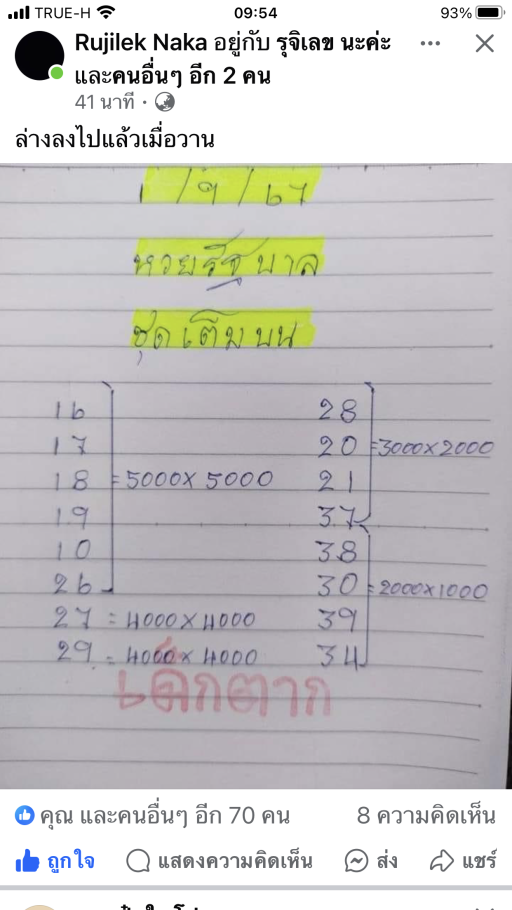 TRUE-H 09:54 93%
Rujilek Naka อยู่กับ รุจิเลข นะค่ะ
และคนอื่นๆ อีก 2 คน
41 นาที ·
ล่างลงไปแล้วเมื่อวาน
1 / 9 / 67
หวยรัฐบาล
ชุดเต็มบน
16 28
17 20 =3000×2000
18 =5000×5000 21
19 37
10 38
26 30 =2000×1000
27 = 4000×4000 39
29 = 4000×4000 34
เด็กตาก
คุณ และคนอื่นๆ อีก 70 คน 8 ความคิดเห็น
ถูกใจ แสดงความคิดเห็น ส่ง แชร์